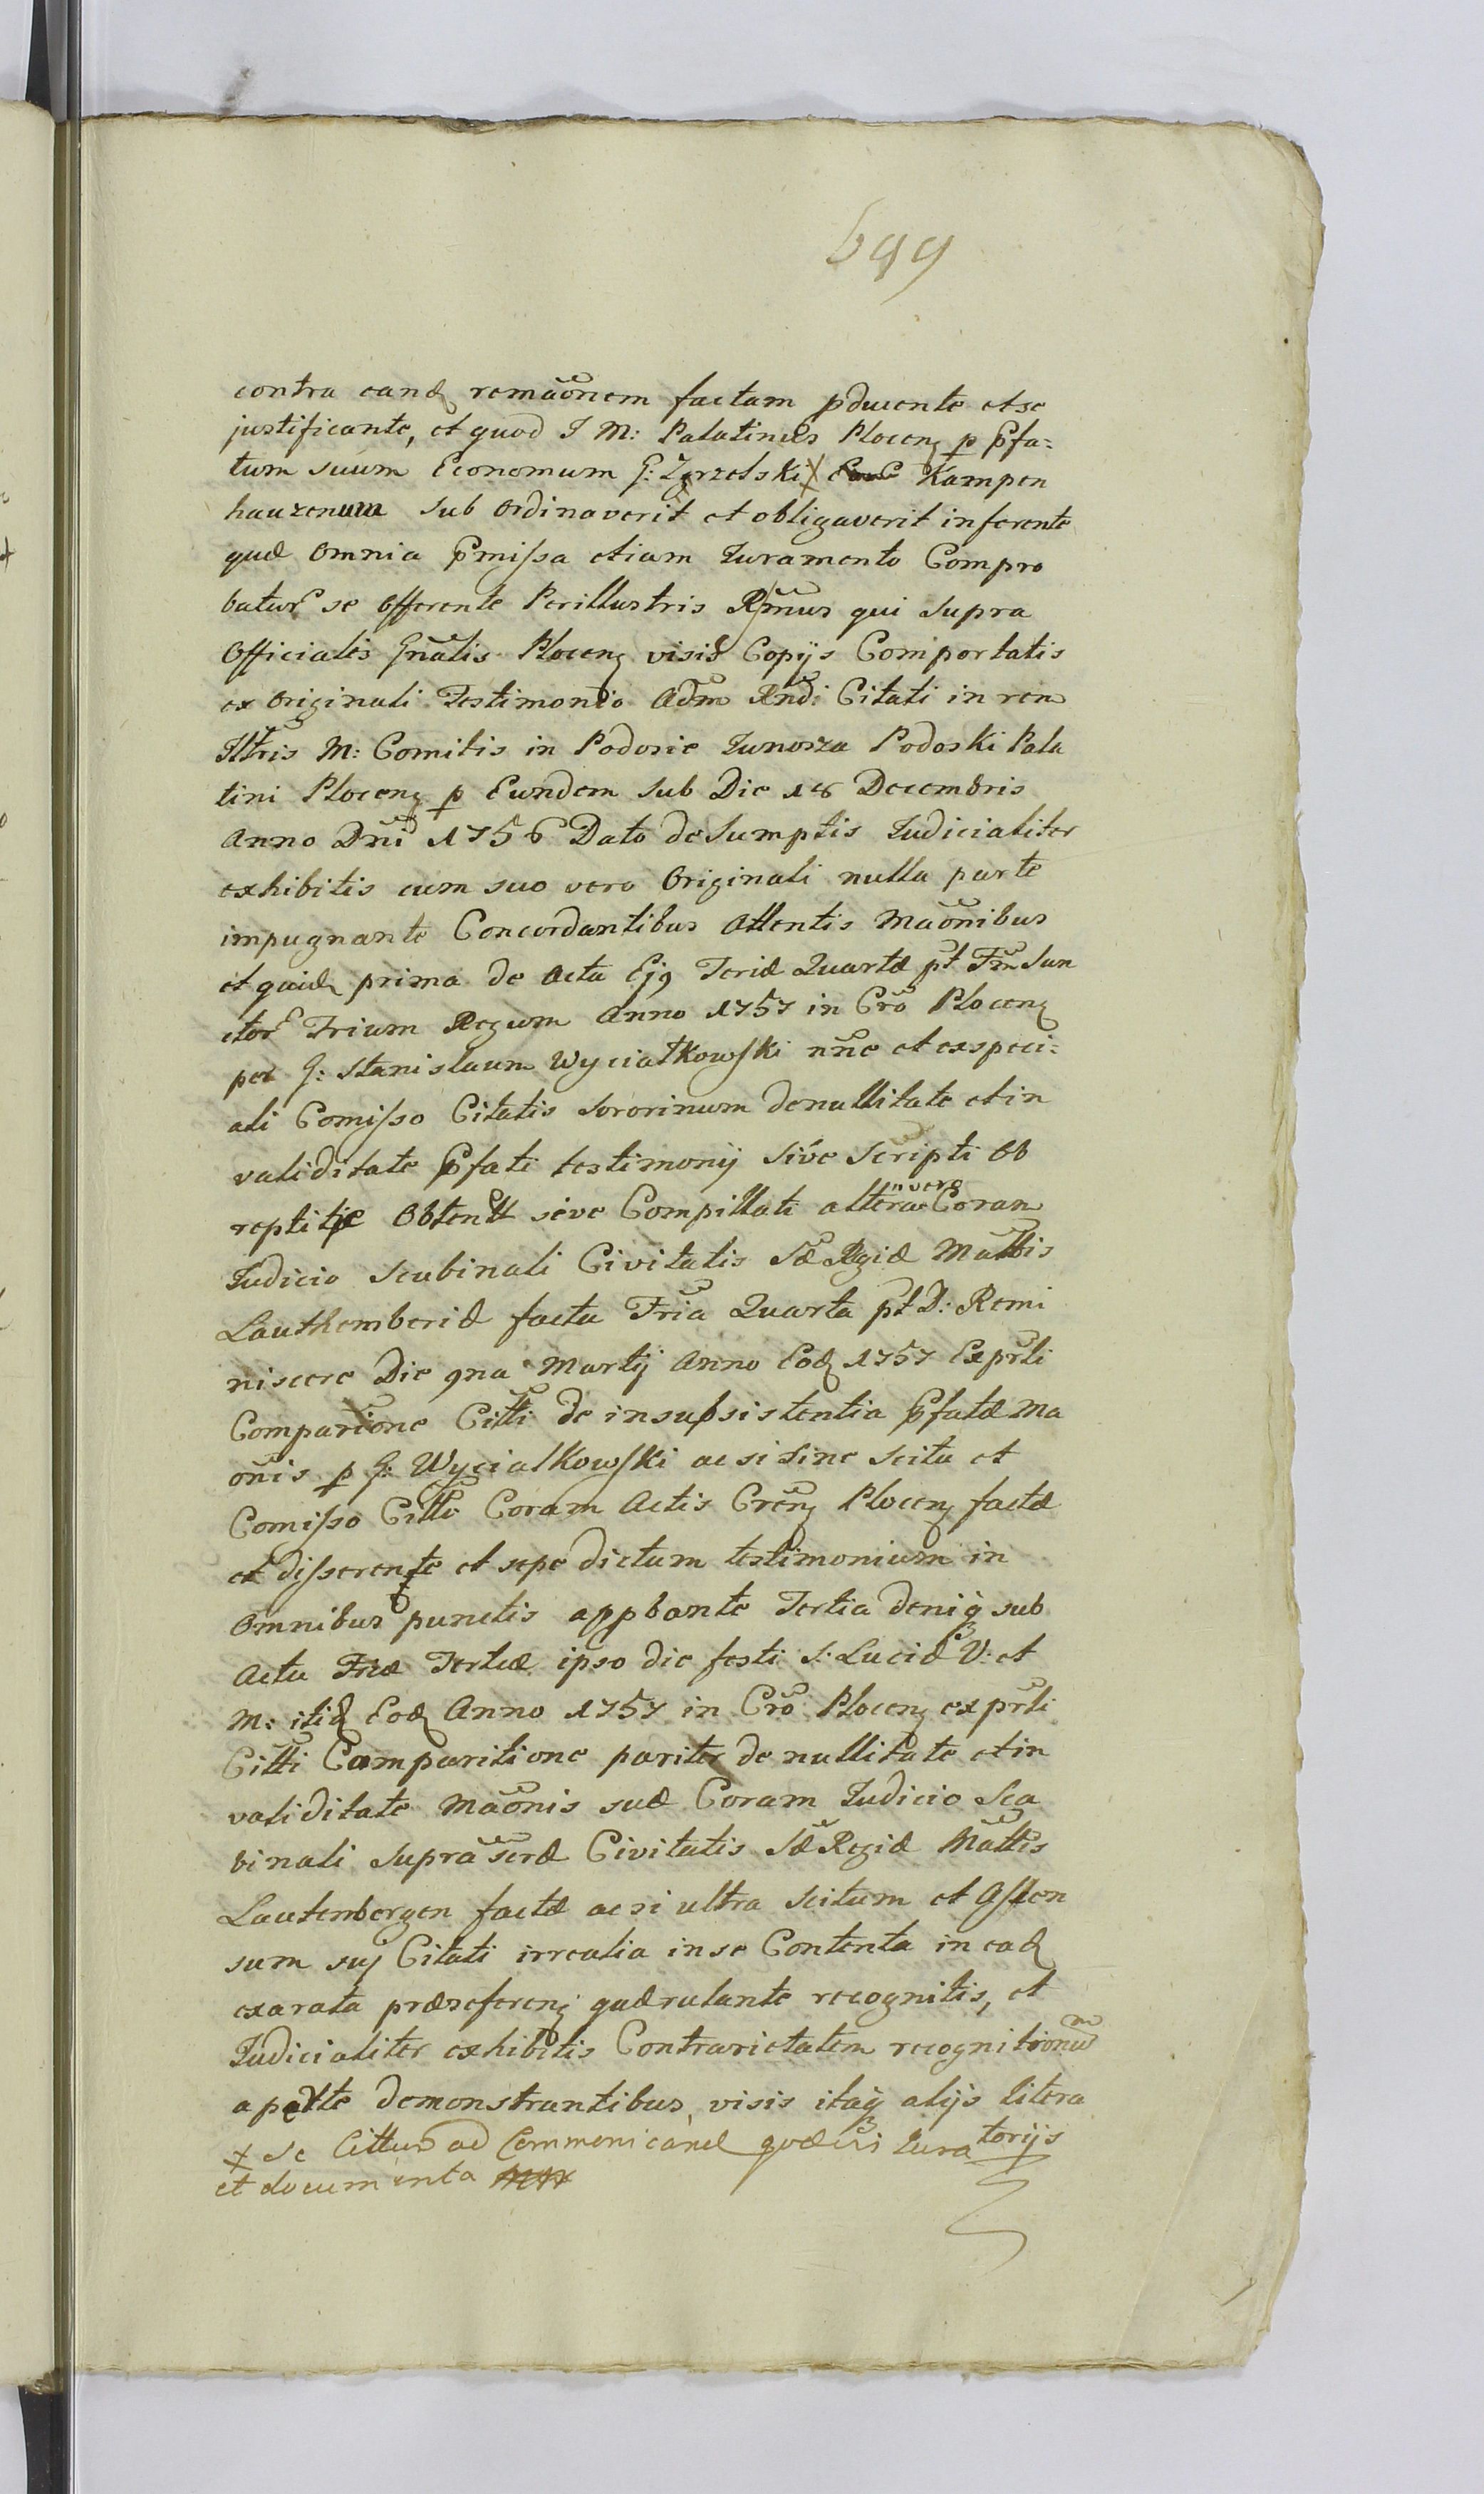 699
contra eand remãõnem factam pducente et se
justificante, et quod I M: Palatinus Plocen p Pfa=
tum suum Economum G: Zgrzelski X Kampen
hauzenum sub ordinaverit et obligaverit inferente
quæ omnia Pmissa etiam Juramento Compro
batur se offerente Perillustris Rmus qui supra
Officialis Gnalis Plocen visis Copijs Comportatis
ex originali Testimonio Adm Rndi Citati in rem
Illtris M: Comitis in Podosie Junosza Podoski Pala
tini Plocen p Eundem sub Die 18 Decembris
Anno Dni 1756 Dato desumptis Judicialiter
exhibitis cum suo vero Originali nulla parte
impugnante Concordantibus attentis Mãõnibus
et quid prima de actu Ejq Feriæ Quartæ pt Fm San
ctor Trium Regum Anno 1757 in Cro Plocen
per G: Stanislaum Wyciałkowski nne et ex speci=
ali Comisso Citatis sororinum de nullitate et in
validitate Pfati testimonij sive scripti ob
reptitie obtenti seve Compillati altera vero Coram
Judicio Scabinali Civitatis Sæ Rgiæ Mattis
Lauthemberiæ facta Fria Quarta pt D: Remi
niscere Die qna Martij Anno Eod 1757 Ex prli
Comparione Citti de insubsistentia Pfatæ Ma
onis p G: Wycialkowski ac si sine scitu et
Comisso Citti Coram Actis Cren Plocen factæ
et disserente et sepe dictum testimonium in
omnibus punctis appbante Tertia deniq sub
Actu Friæ Tertiæ ipso die festi S: Luciæ V: et
M: itid Eod Anno 1757 in Cro Plocen ex prli
Citti Comparitione pariter de nullitate et in
validitate Mãõnis suæ Coram Judicio Sca
binali suprascræ Civitatis Sæ Regiæ Mattis
Lautembergen factæ ac si ultra scitum et Assen
sum suj Citati irrealia in se Contenta in ead
exarata præreferen quærulante recognitis, et
Judicialiter exhibitis Contrarietatem recognitionum
aperte demonstrantibus, visis itaq alijs litera
torijs
X se Cittus ad Communicand
et documenta